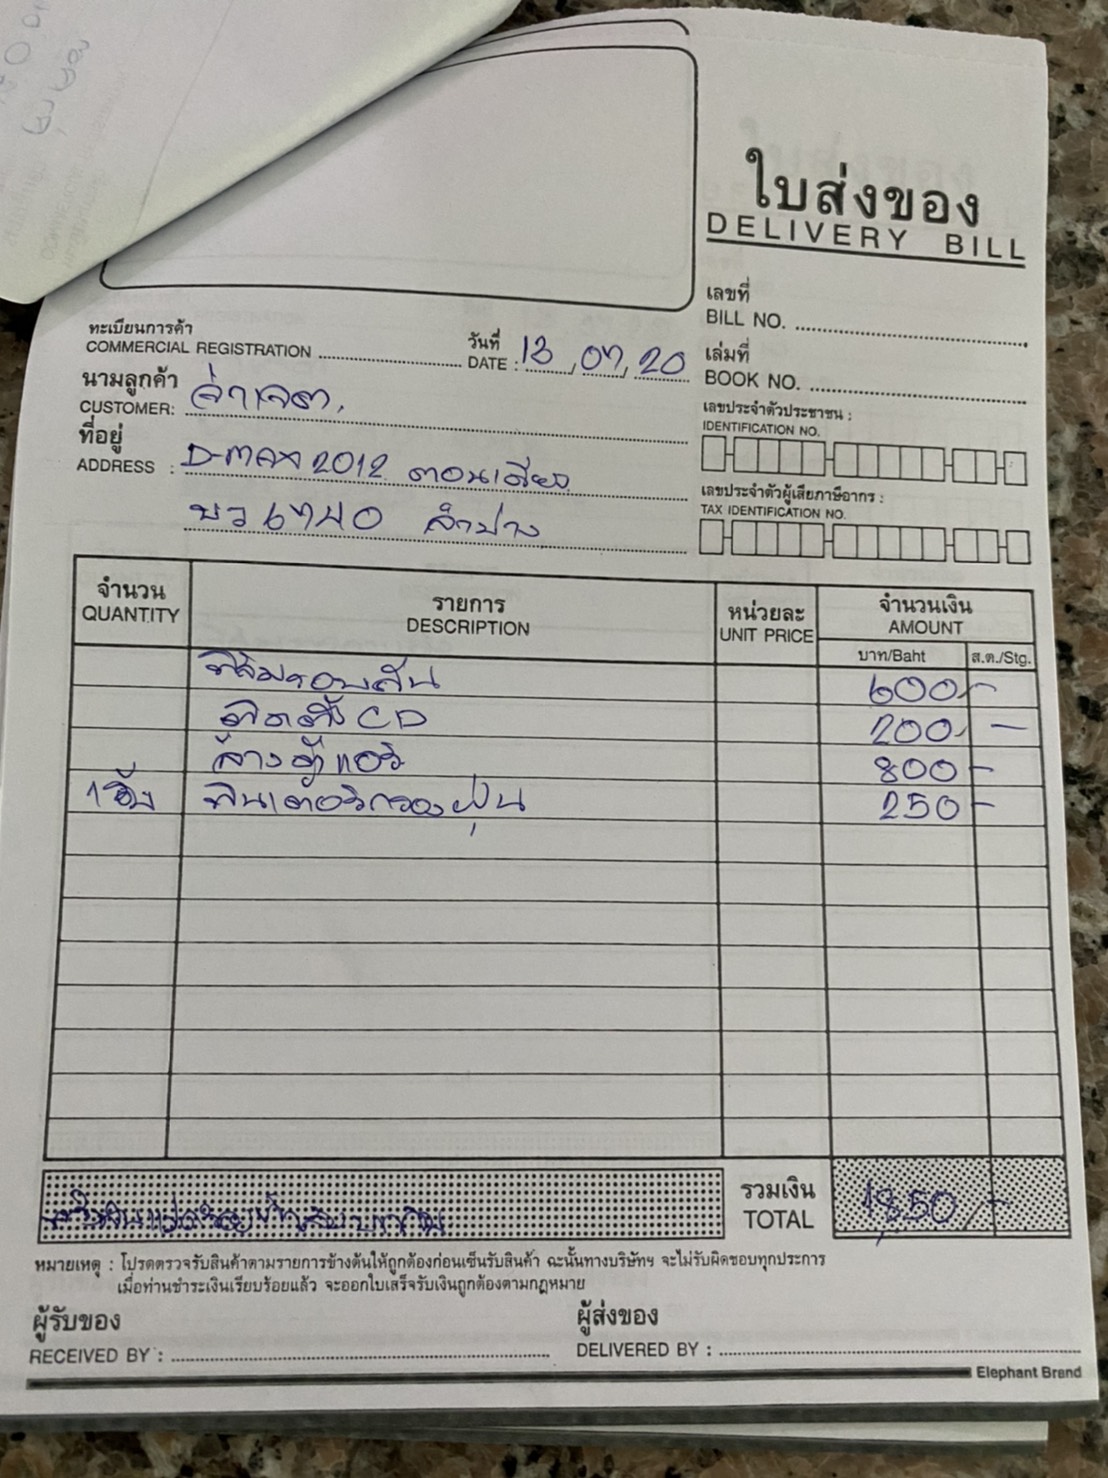 ใบส่งของ
DELIVERY BILL
เลขที่
BILL NO.
ทะเบียนการค้า
COMMERCIAL REGISTRATION
วันที่
DATE : 13, 07, 20
เล่มที่
BOOK NO.
นามลูกค้า
CUSTOMER: จ่าเจตา.
เลขประจำตัวประชาชน :
IDENTIFICATION NO.
ที่อยู่
ADDRESS : D-max 2012 ตอนเดียว
บว 6740 ลำปาง
เลขประจำตัวผู้เสียภาษีอากร :
TAX IDENTIFICATION NO.
จำนวน
QUANTITY
รายการ
DESCRIPTION
หน่วยละ
UNIT PRICE
จำนวนเงิน
AMOUNT
บาท/Baht ส.ต./Stg.
ฟิล์มรอบคัน 600 -
ติดตั้ง CD 200 -
ล้างตู้แอร์ 800 -
1 ชิ้น ฟินเตอร์กรองฝุ่น 250 -
รวมเงิน
TOTAL 1,850/-
หมายเหตุ : โปรดตรวจรับสินค้าตามรายการข้างต้นให้ถูกต้องก่อนเซ็นรับสินค้า ฉะนั้นทางบริษัทฯ จะไม่รับผิดชอบทุกประการ
เมื่อท่านชำระเงินเรียบร้อยแล้ว จะออกใบเสร็จรับเงินถูกต้องตามกฎหมาย
ผู้รับของ
RECEIVED BY :
ผู้ส่งของ
DELIVERED BY :
Elephant Brand